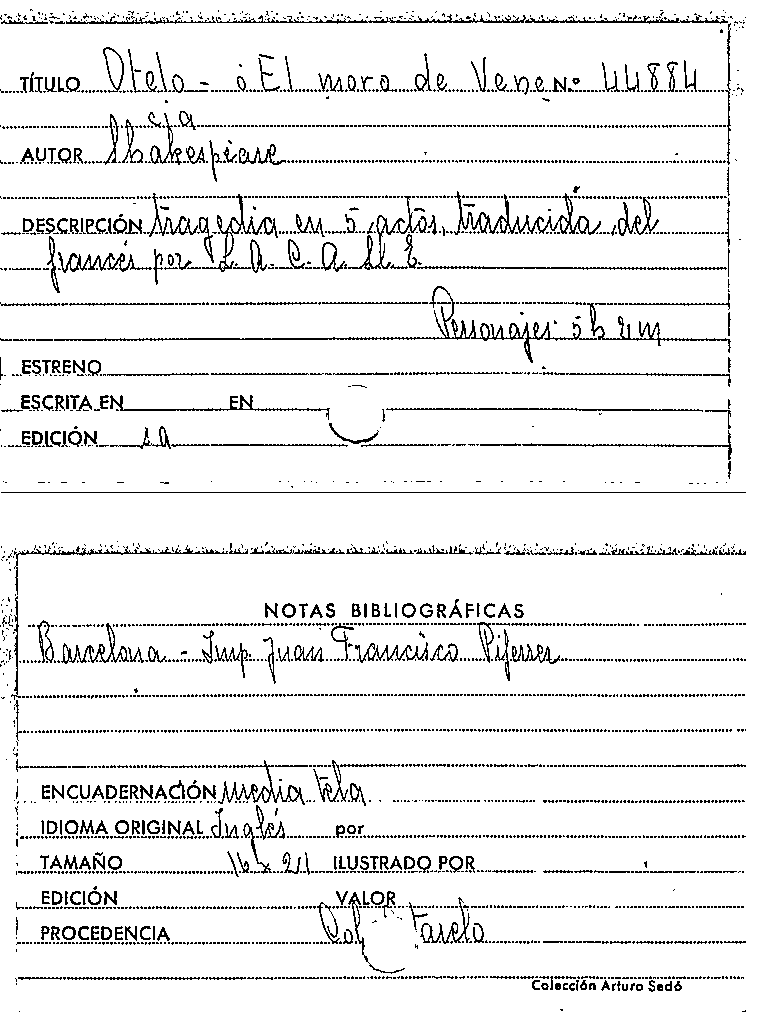 TÍTULO Otelo - ó El moro de Vene Nº 44884
cia
AUTOR Shakespeare
DESCRIPCIÓN tragedia en 5 actos, traducida del
francés por L. A. C. A. Ll. E.
Personajes: 5 h 2 m
ESTRENO
ESCRITA EN EN
EDICIÓN s a
NOTAS BIBLIOGRÁFICAS
Barcelona - Imp. Juan Francisco Piferrer
ENCUADERNACIÓN media tela
IDIOMA ORIGINAL Inglés por
TAMAÑO 16 x 21 ILUSTRADO POR
EDICIÓN VALOR
PROCEDENCIA
Colección Arturo Sedó